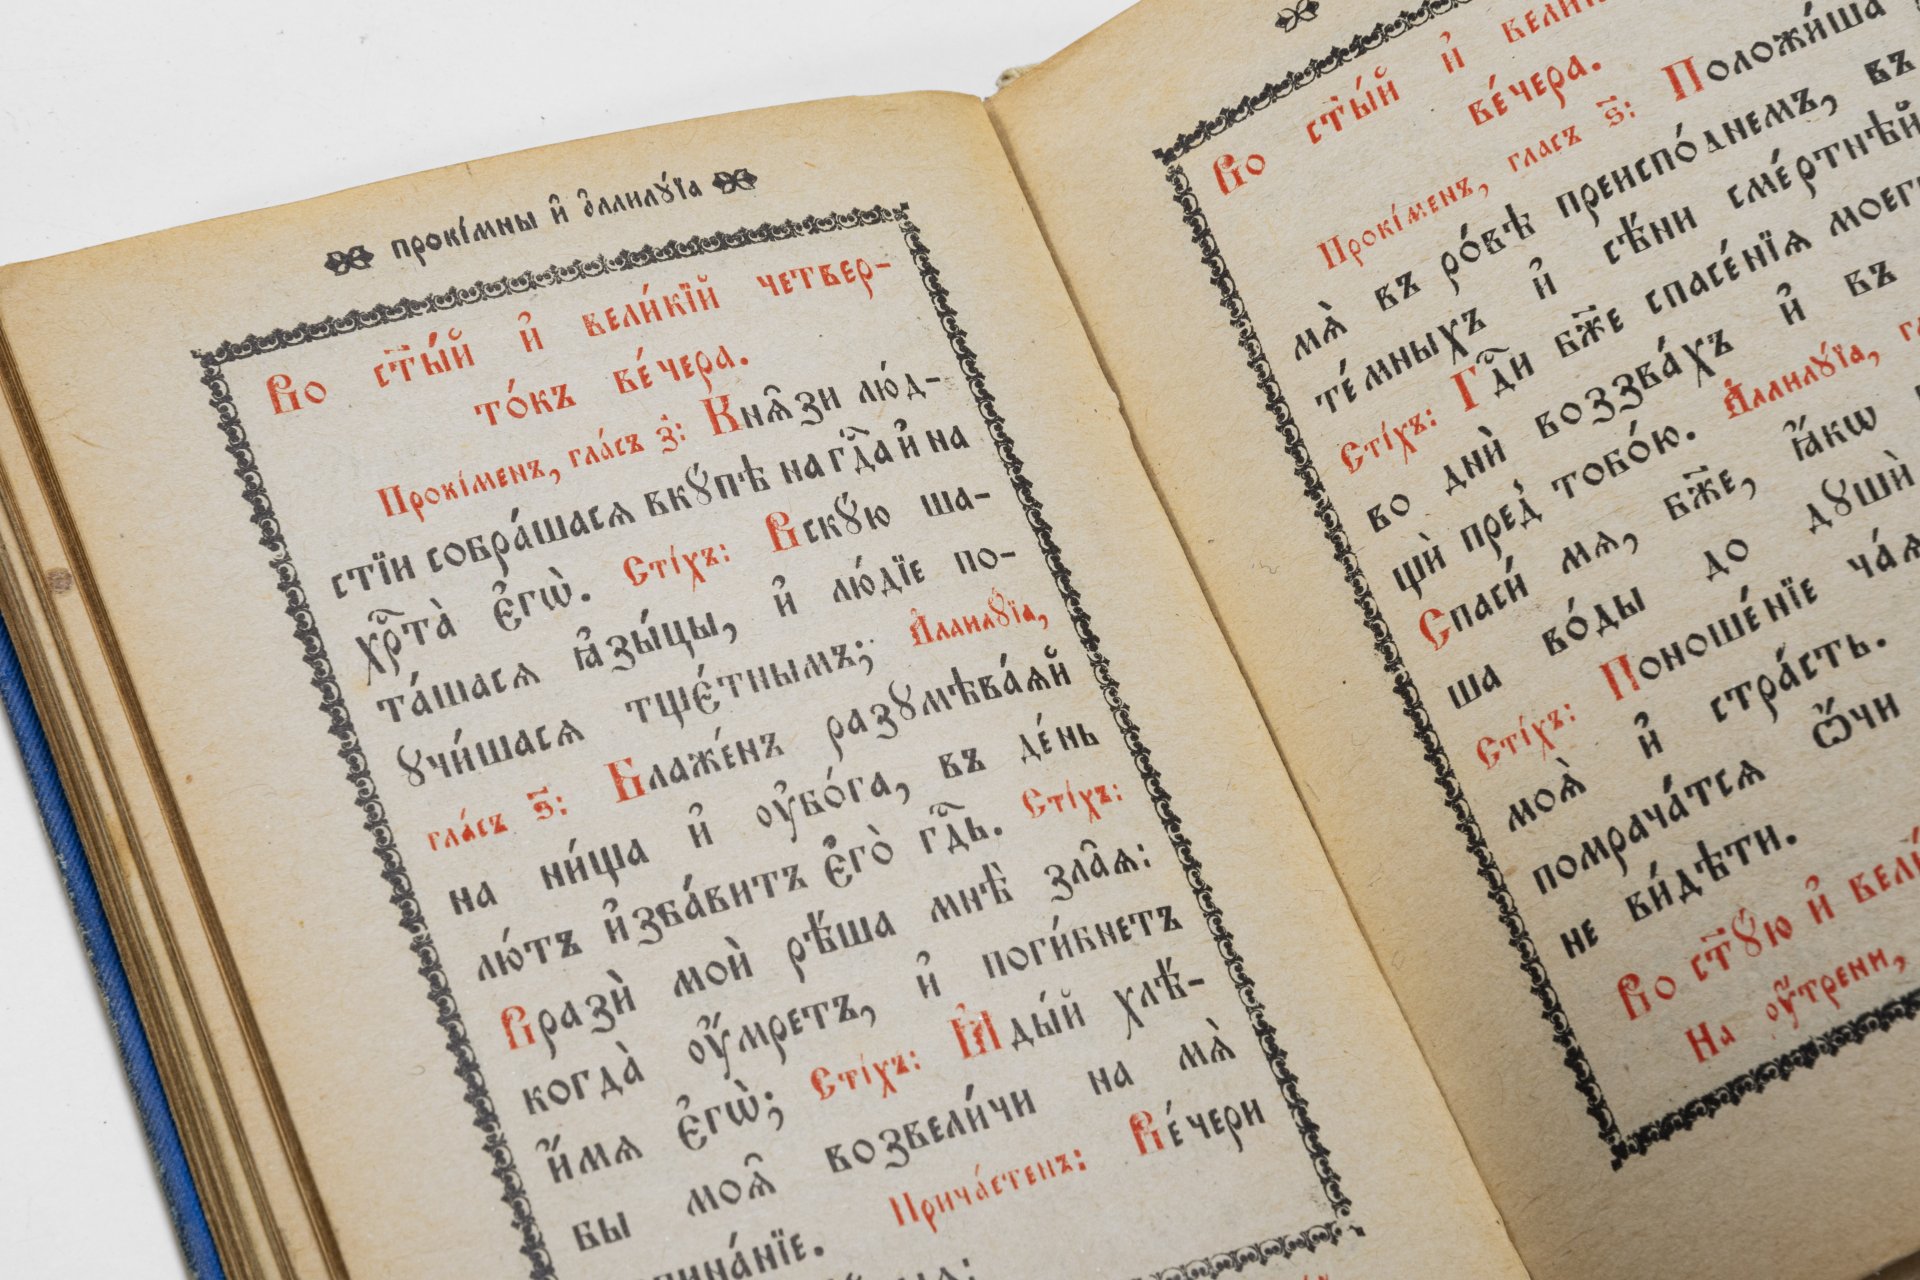 прокі́мны и҆ а҆ллилꙋ́їа
Во ст҃ы́й и҆ вели́кїй четвер-
то́къ ве́чера.
Прокі́менъ, гла́съ з҃: Кнѧ̑зи лю́д-
стїи собра́шасѧ вкꙋ́пѣ на гдⷭ҇а и҆ на
хрⷭ҇та̀ є҆гѡ̀. Сті́хъ: Вскꙋ́ю ша-
та́шасѧ ꙗ҆зы́цы, и҆ лю́дїе по-
ꙋчи́шасѧ тщє́тнымъ; А҆ллилꙋ́їа,
гла́съ ѕ҃: Блаже́нъ разꙋмѣва́ѧй
на ни́ща и҆ ᲂу҆бо́га, въ де́нь
лю́тъ и҆зба́витъ є҆го̀ гдⷭ҇ь. Сті́хъ:
Вразѝ моѝ рѣ́ша мнѣ̀ зла̑ѧ:
когда̀ ᲂу҆́мретъ, и҆ поги́бнетъ
и҆́мѧ є҆гѡ̀; Сті́хъ: Ꙗ҆ды́й хлѣ́-
бы моѧ̑ возвели́чи на мѧ̀
Прича́стенъ: Ве́чери
Во ст҃ы́й и҆
ве́чера.
Прокі́менъ, гласъ ѕ҃: Положи́ша
мѧ̀ въ ро́вѣ преиспо́днемъ, въ
те́мныхъ и҆ сѣ́ни сме́ртнѣй
Сті́хъ: Гдⷭ҇и бж҃е спасе́нїѧ
во днѝ воззва́хъ и҆ въ
щѝ пред̾ тобо́ю. А҆ллилꙋ́їа,
Спаси́ мѧ, бж҃е, ꙗ҆́кѡ
ша во́ды до дꙋшѝ
Сті́хъ: Поноше́нїе
моѧ̀ и҆ стра́сть.
помрача́тсѧ ѻ҆́чи
не ви́дѣти.
Во ст҃ꙋ́ю и҆
На ᲂу҆́трени,